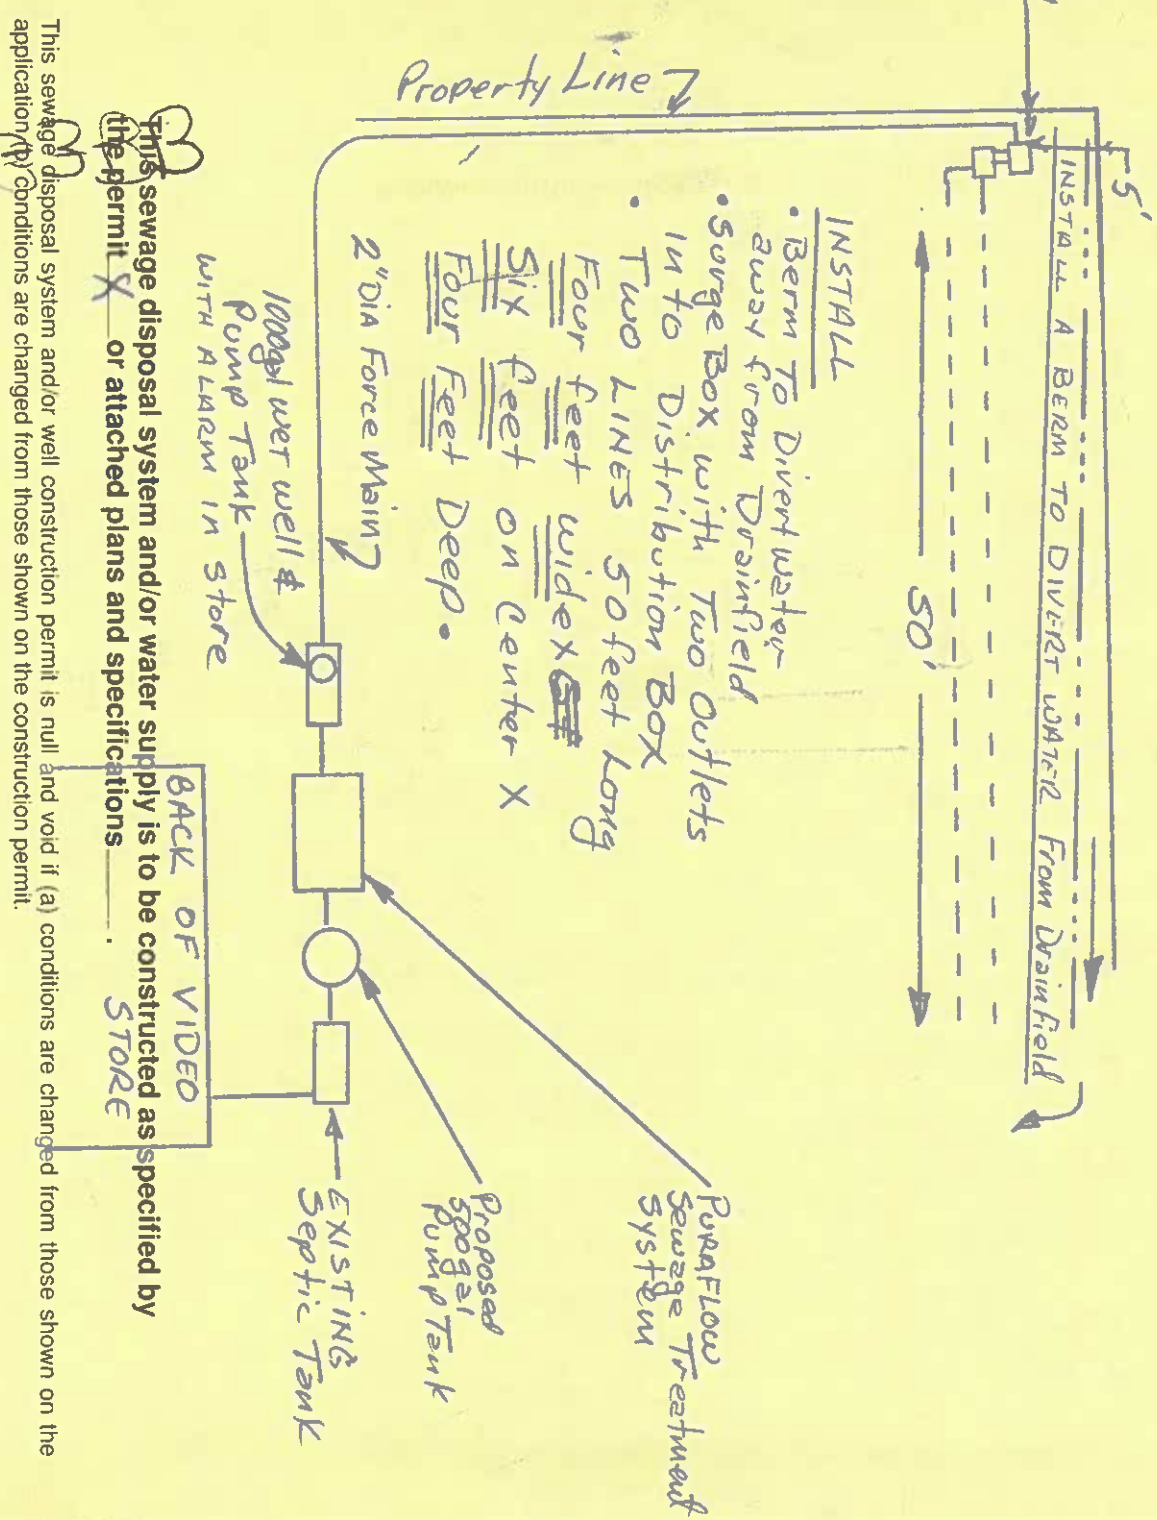 Property Line
5'
INSTALL A BERM TO DIVERT WATER From Drainfield
50'
INSTALL
• Berm To Divert water
away from Drainfield
• Surge Box with Two Outlets
into Distribution Box
• Two LINES 50 feet Long
Four feet wide X
Six feet on Center X
Four Feet Deep.
2" DIA Force Main
1000gal wet well &
Pump Tank
WITH ALARM IN Store
PURAFLOW
Sewage Treatment
System
Proposed
500gal
Pump Tank
EXISTING
Septic Tank
BACK OF VIDEO
STORE
This sewage disposal system and/or water supply is to be constructed as specified by
the permit X or attached plans and specifications ____.
This sewage disposal system and/or well construction permit is null and void if (a) conditions are changed from those shown on the
application (b) conditions are changed from those shown on the construction permit.